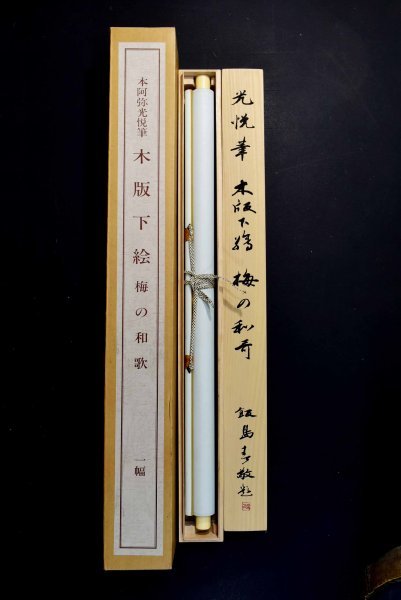 光悦筆 木版下絵 梅の和哥
飯島春敬題
本阿弥光悦筆 木版下絵 梅の和歌 一幅